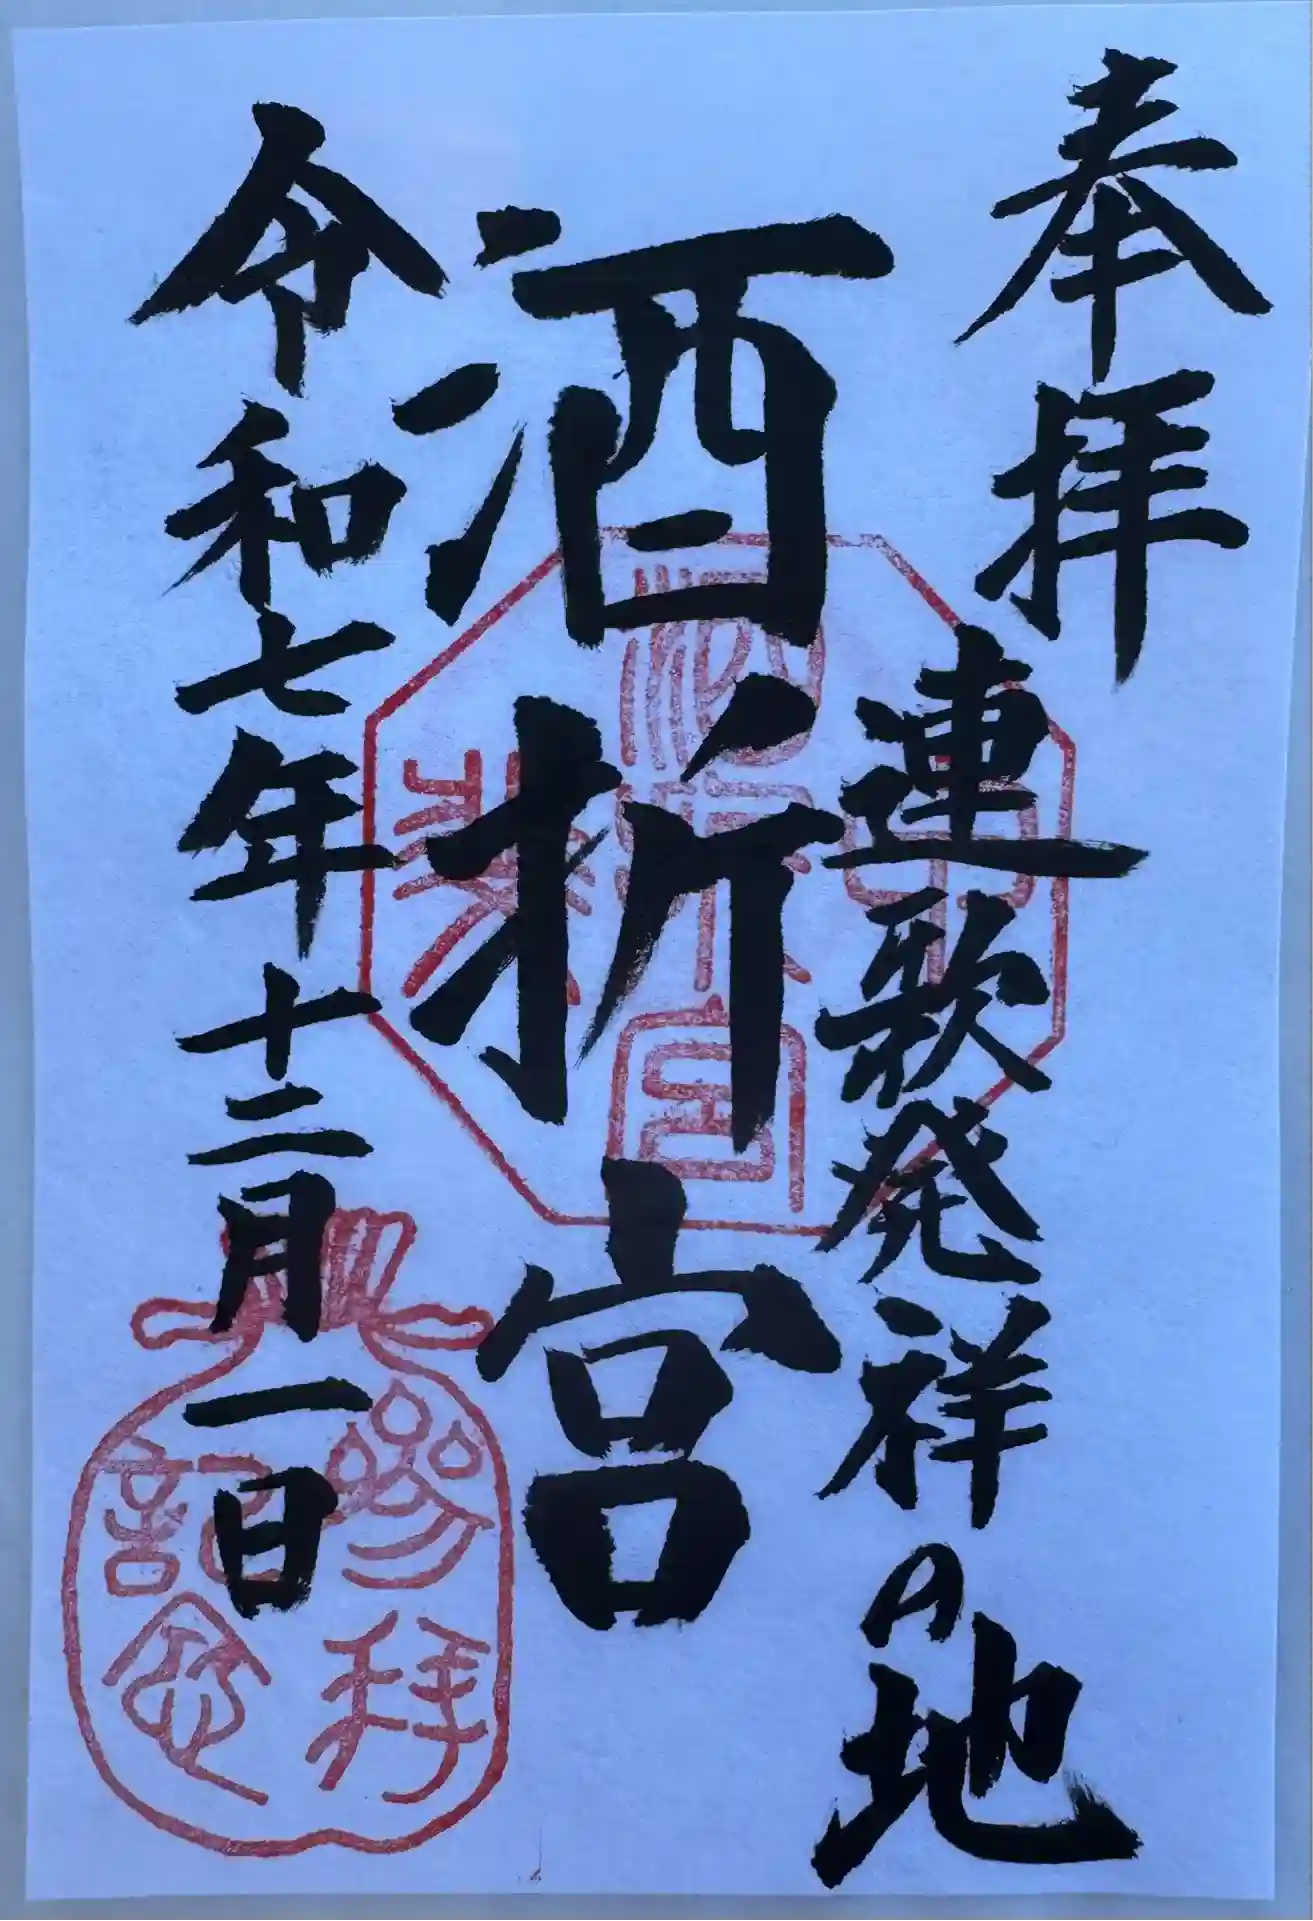 奉拝
連歌発祥の地
酒折宮
令和七年十二月一日
酒折宮
参拝
記念